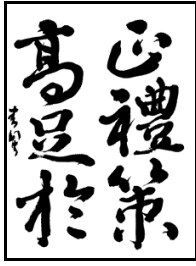 正禮策
高足於